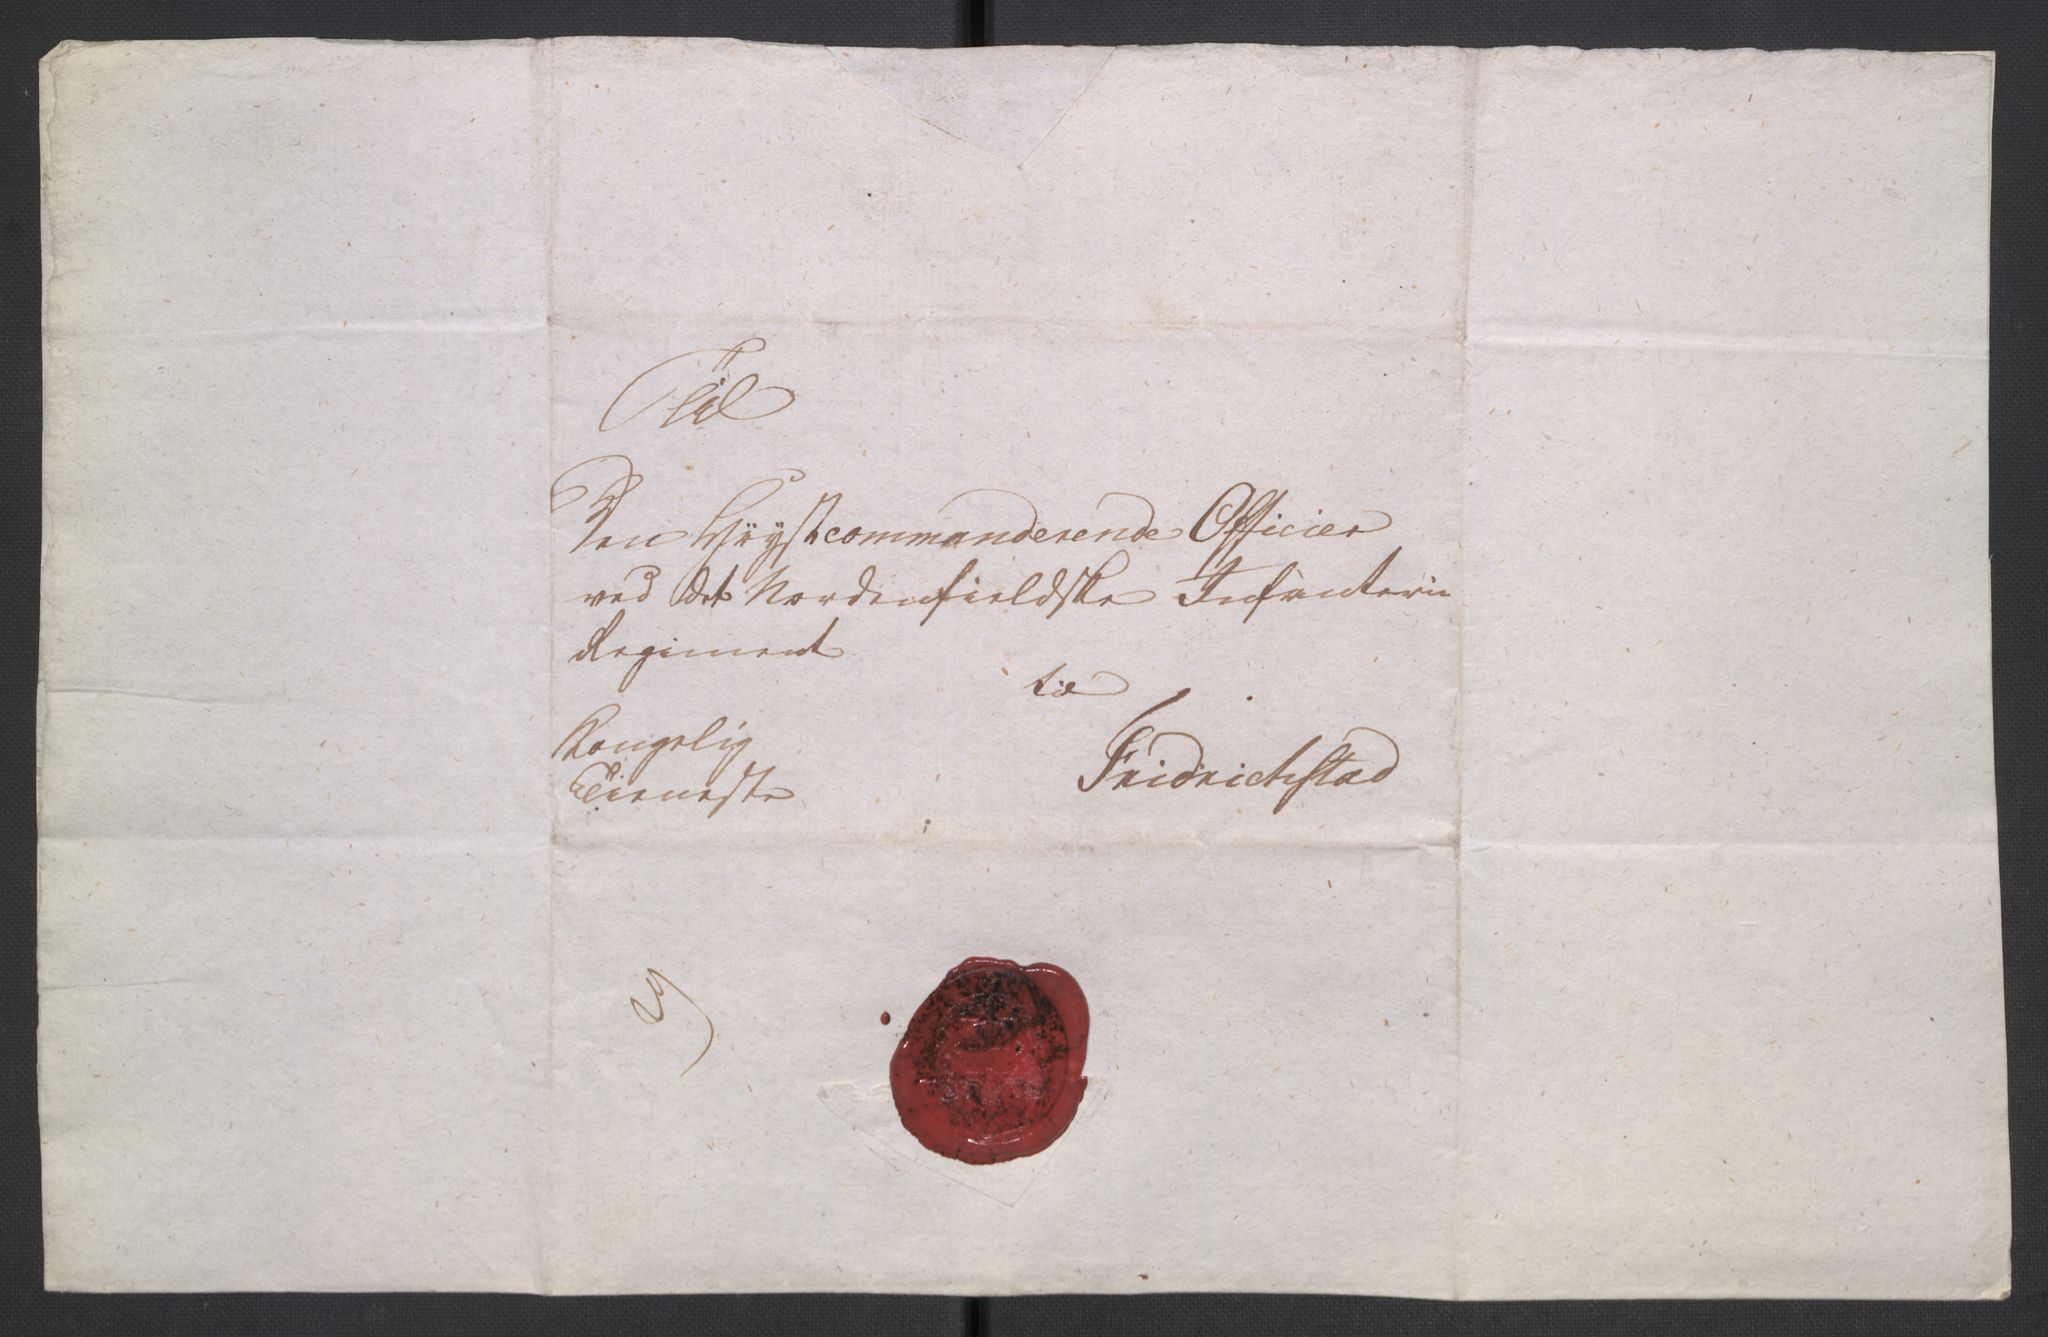 Til
Den Høystcommanderende Officier
ved det Nordenfieldske Infanterie
Regiment
til
Fridrichstad
Kongelig
Tieneste